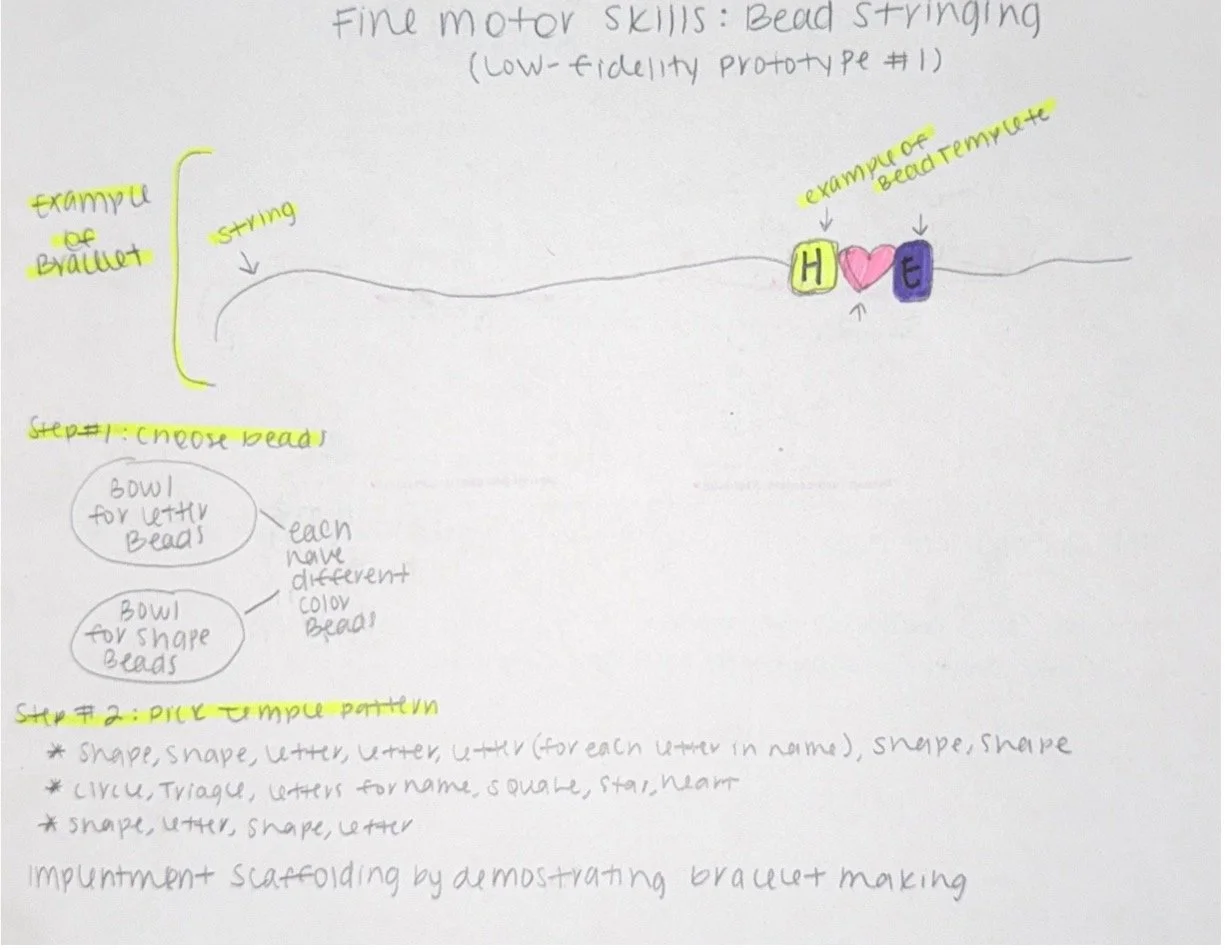 Fine motor skills: Bead stringing
(Low-fidelity prototype #1)
example of
Bead Templete
Example
of
Bracelet
string
H E
Step#1: choose beads
Bowl
for letter
Beads
each
have
different
color
Beads
Bowl
for shape
Beads
Step #2: pick temple pattern
* shape, shape, letter, letter, letter (for each letter in name), shape, shape
* circle, Triagle, letters for name, square, star, heart
* shape, letter, shape, letter
implentment scaffolding by demostrating bracelet making